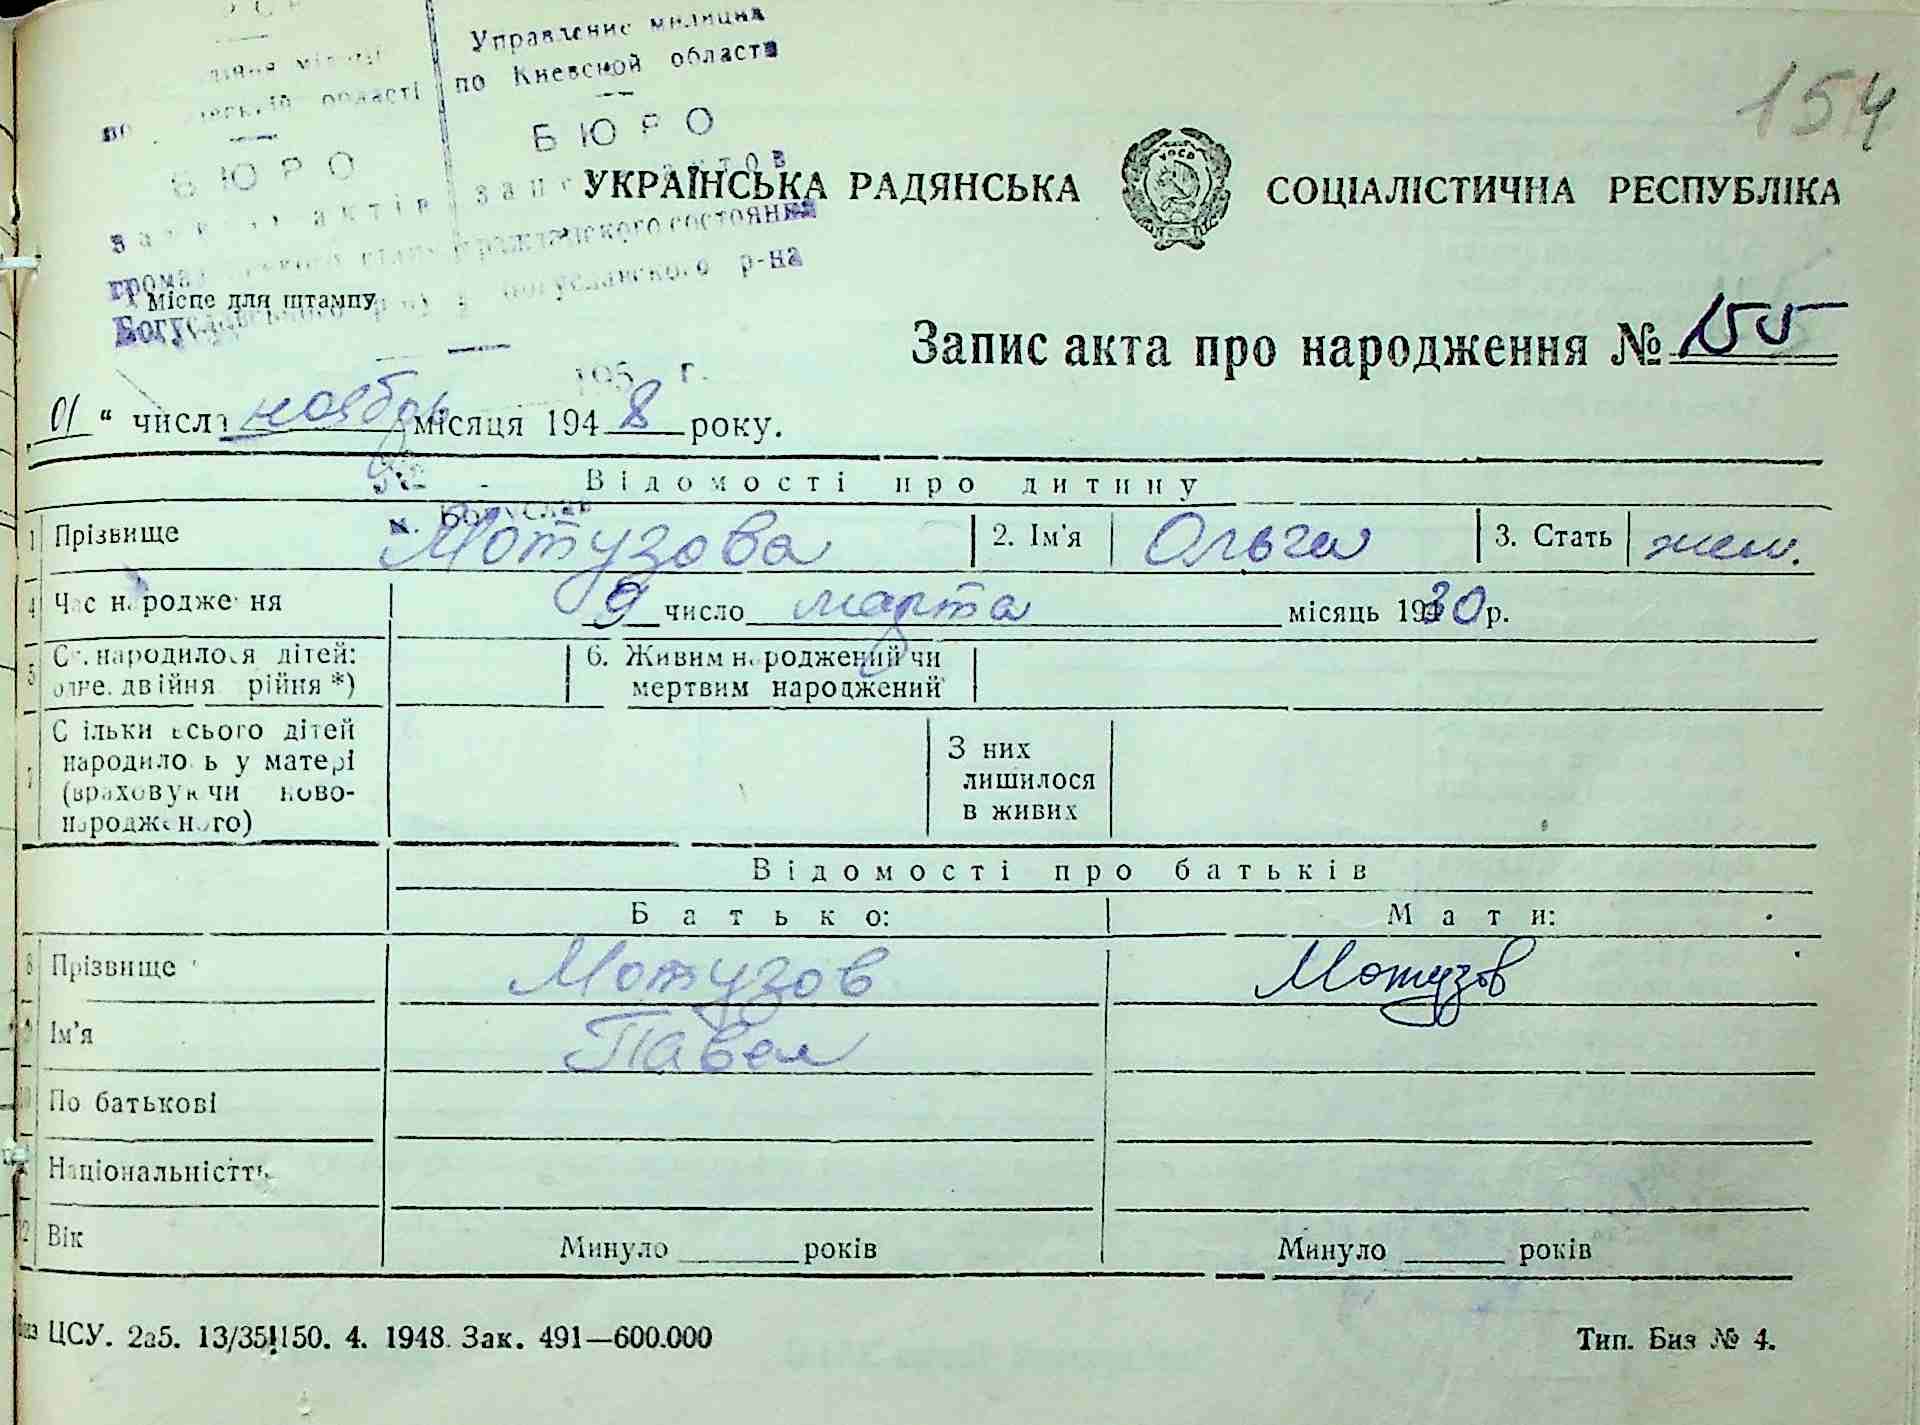 Управление милиции
по Киевской области
области
БЮРО
БЮРО
актів
гражданского состояния
Богуславского р-на
154
УКРАЇНСЬКА РАДЯНСЬКА СОЦІАЛІСТИЧНА РЕСПУБЛІКА
Місце для штампу
Запис акта про народження № 155
195 г.
01 " числа ноября місяця 1948 року.
Відомості про дитину
м. Богуслав
1 Прізвище Мотузова 2. Ім'я Ольга 3. Стать жен.
4 Час народження 9 число марта місяць 1930 р.
5 Ск. народилося дітей: 6. Живим народжений чи
одне, двійня, трійня *) мертвим народжений
7 Скільки всього дітей
народилось у матері
(враховуючи ново-
народженого)
З них
лишилося
в живих
Відомості про батьків
Батько: Мати:
8 Прізвище Мотузов Мотузов
9 Ім'я Павел
По батькові
Національність
12 Вік Минуло ______ років Минуло ______ років
ЦСУ. 2а5. 13/35 150. 4. 1948. Зак. 491—600.000 Тип. Биз № 4.